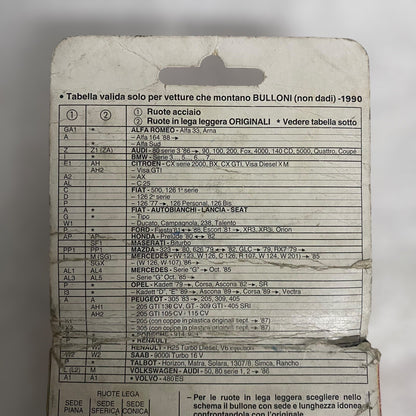 • Tabella valida solo per vetture che montano BULLONI (non dadi) -1990
① ② ① Ruote acciaio
② Ruote in lega leggera ORIGINALI * Vedere tabella sotto
GA1 * ALFA ROMEO - Alfa 33, Arna
A - Alfa 164 '88
* - Alfa Sud
Z Z1 (ZA) AUDI - 80 serie 3 '86 90, 100, 200, Fox, 4000, 140 CD, 5000, Quattro, Coupé
* BMW - Serie 3, 5, 6, 7
E1 AH CITROEN - CX serie 2000, BX, CX GTI, Visa Diesel XM
AH2 - Visa GTI
A2 - AX
AL - C 25
C FIAT - 500, 126 1ª serie
C - 126 2ª serie
P - 126 '77 126 Personal, 126 Bis
A * FIAT - AUTOBIANCHI - LANCIA - SEAT
G * - Tipo
W1 - Ducato, Campagnola, 238, Talento
P * FORD - Fiesta Escort 81 XR3, XR3i, Orion
AP AP HONDA - Prelude 80 82
SF1 MASERATI - Biturbo
PP1 PP1 MAZDA - 323 80, 626 79 82, GLC 79, RX7 79
L M (SG) MERCEDES - (W 123, W 126, C 126, R 107, W 124, W 201) 85
SGX (W 126, W 107) 86
AL1 AL4 MERCEDES - Serie "G" Oct. '85
AL3 AL5 - Serie "G" Oct. 85
P * OPEL - Kadett '79 Corsa, Ascona '82 SR
I3 * - Kadett "D", "E" '89 Ascona '89 Corsa '89 Vectra
A PEUGEOT - 305 '83 205, 309, 405
AH1 - 205 GTI 130 CV, GT - 309 GTI - 405 SRI
AH2 - 205 GTI 105 CV - 115 CV
* - 205 (con coppe in plastica originali sett. '86)
- 305 (con coppe in plastica originali sett. '86)
RENAULT
W2 RENAULT - R25 Turbo Diesel, V6 Iniezione
W2 W2 SAAB - 9000i Turbo 16 V
P TALBOT - Horizon, Matra, Solara, 1307/8, Simca, Rancho
L (L2) M VOLKSWAGEN - AUDI, 50, 80 serie 1, 2 '86
A1 A1 * VOLVO - 480 ES
RUOTE LEGA
SEDE PIANA SEDE SFERICA SEDE CONICA
- Per le ruote in lega leggera scegliere nello
schema il bullone con sede e lunghezza idonea
confrontandola con l'originale